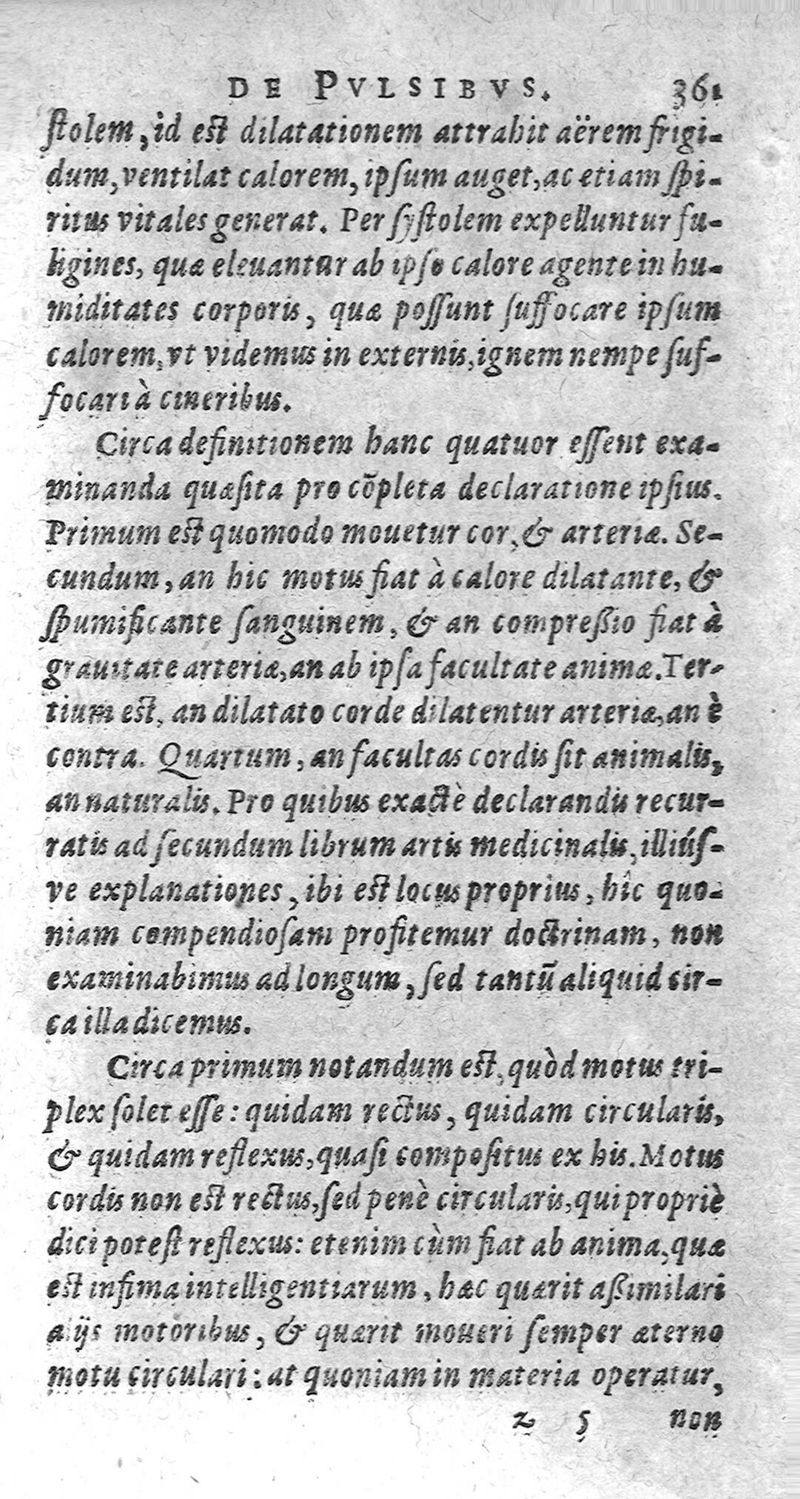 DE PVLSIBVS. 361
ſtolem, id eſt dilatationem attrahit aërem frigi-
dum, ventilat calorem, ipſum auget, ac etiam ſpi-
ritus vitales generat. Per ſyſtolem expelluntur fu-
ligines, quæ eleuantur ab ipſo calore agente in hu-
miditates corporis, quæ poſſunt ſuffocare ipſum
calorem, vt videmus in externis, ignem nempe ſuf-
focari à cineribus.
Circa definitionem hanc quatuor eſſent exa-
minanda quæſita pro cōpleta declaratione ipſius.
Primum eſt quomodo mouetur cor, & arteriæ. Se-
cundum, an hic motus fiat à calore dilatante, &
ſpumificante ſanguinem, & an compreßio fiat à
grauitate arteriæ, an ab ipſa facultate animæ. Ter-
tium eſt, an dilatato corde dilatentur arteriæ, an è
contra. Quartum, an facultas cordis ſit animalis,
an naturalis. Pro quibus exactè declarandis recur-
ratis ad ſecundum librum artis medicinalis, illiúſ-
ve explanationes, ibi eſt locus proprius, hîc quo-
niam compendioſam profitemur doctrinam, non
examinabimus ad longum, ſed tantũ aliquid cir-
ca illa dicemus.
Circa primum notandum eſt, quòd motus tri-
plex ſolet eſſe: quidam rectus, quidam circularis,
& quidam reflexus, quaſi compoſitus ex his. Motus
cordis non eſt rectus, ſed penè circularis, qui propriè
dici poteſt reflexus: etenim cùm fiat ab anima, quæ
eſt infima intelligentiarum, hæc quærit aßimilari
alijs motoribus, & quærit moueri ſemper æterno
motu circulari: at quoniam in materia operatur,
z 5 non